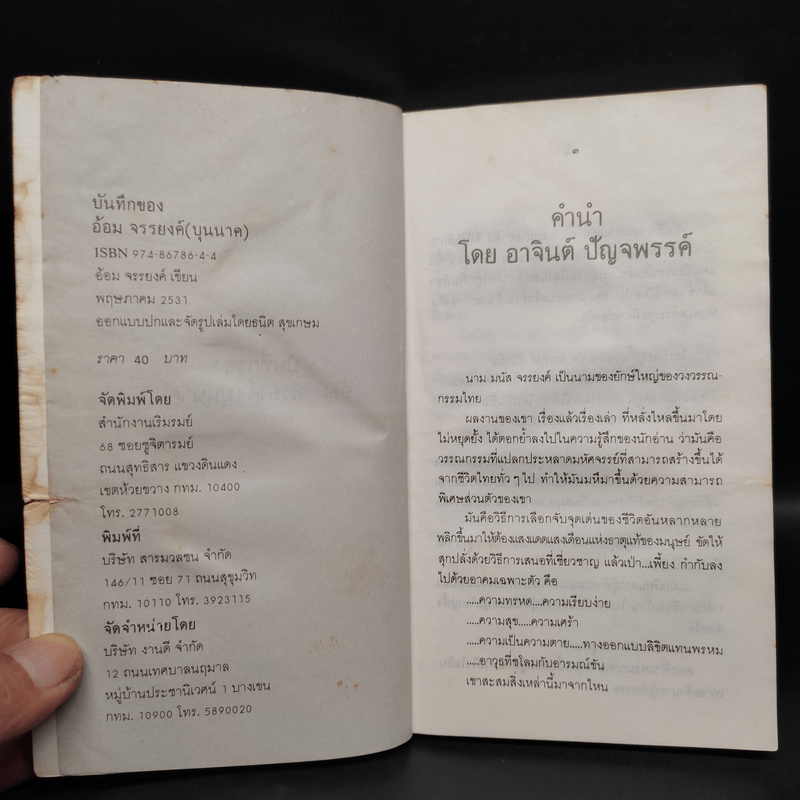 บันทึกของ
อ้อม จรรยงค์(บุนนาค)
ISBN 974-86786-4-4
อ้อม จรรยงค์ เขียน
พฤษภาคม 2531
ออกแบบปกและจัดรูปเล่มโดยธนิต สุขเกษม
ราคา 40 บาท
จัดพิมพ์โดย
สำนักงานเริมรมย์
68 ซอยชูจิตารมย์
ถนนสุทธิสาร แขวงดินแดง
เขตห้วยขวาง กทม. 10400
โทร. 2771008
พิมพ์ที่
บริษัท สารมวลชน จำกัด
146/11 ซอย 71 ถนนสุขุมวิท
กทม. 10110 โทร. 3923115
จัดจำหน่ายโดย
บริษัท งานดี จำกัด
12 ถนนเทศบาลนฤมาล
หมู่บ้านประชานิเวศน์ 1 บางเขน
กทม. 10900 โทร. 5890020
๓
คำนำ
โดย อาจินต์ ปัญจพรรค์
นาม มนัส จรรยงค์ เป็นนามของยักษ์ใหญ่ของวงวรรณ-
กรรมไทย
ผลงานของเขา เรื่องแล้วเรื่องเล่า ที่หลั่งไหลขึ้นมาโดย
ไม่หยุดยั้ง ได้ตอกย้ำลงไปในความรู้สึกของนักอ่าน ว่ามันคือ
วรรณกรรมที่แปลกประหลาดมหัศจรรย์ที่สามารถสร้างขึ้นได้
จากชีวิตไทยทั่วๆไป ทำให้มันมหึมาขึ้นด้วยความสามารถ
พิเศษส่วนตัวของเขา
มันคือวิธีการเลือกจับจุดเด่นของชีวิตอันหลากหลาย
พลิกขึ้นมาให้ต้องแสงแดดแสงเดือนแห่งธาตุแท้ของมนุษย์ ขัดให้
สุกปลั่งด้วยวิธีการเสนอที่เชี่ยวชาญ แล้วเป่า...เพี้ยง กำกับลง
ไปด้วยอาคมเฉพาะตัว คือ
.....ความทรหด....ความเรียบง่าย
.....ความสุข.....ความเศร้า
.....ความเป็นความตาย.....ทางออกแบบลิขิตแทนพรหม
.....อาวุธที่ชโลมกับอารมณ์ขัน
เขาสะสมสิ่งเหล่านี้มาจากไหน